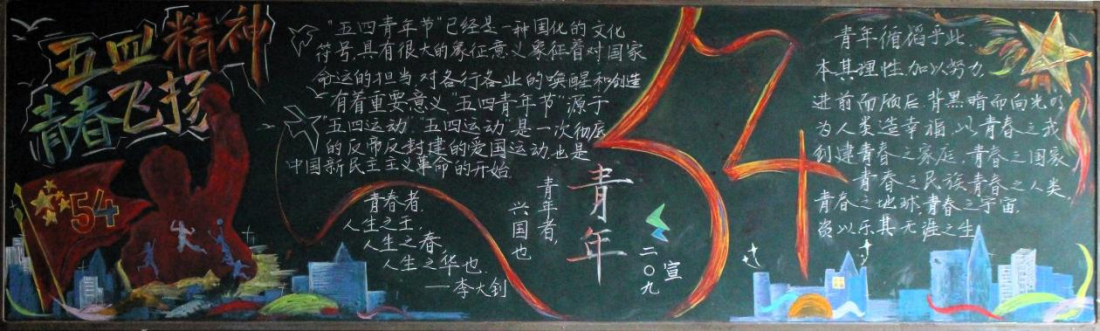 五四精神
青春飞扬
54
"五四青年节"已经是一种国化的文化
符号,具有很大的象征意义象征着对国家
命运的担当对各行各业的唤醒和创造
有着重要意义"五四青年节"源于
"五四运动"五四运动"是一次彻底
的反帝反封建的爱国运动,也是
中国新民主主义革命的开始
青春者,
人生之王,
人生之春,
人生之华也.
——李大钊
青年者,
兴国也
青年
54
二〇九
宣
青年循蹈乎此,
本其理性,加以努力,
进前而顾后,背黑暗而向光明
为人类造幸福,以青春之我
创建青春之家庭,青春之国家
青春之民族,青春之人类
青春之地球,青春之宇宙,
资以乐其无涯之生